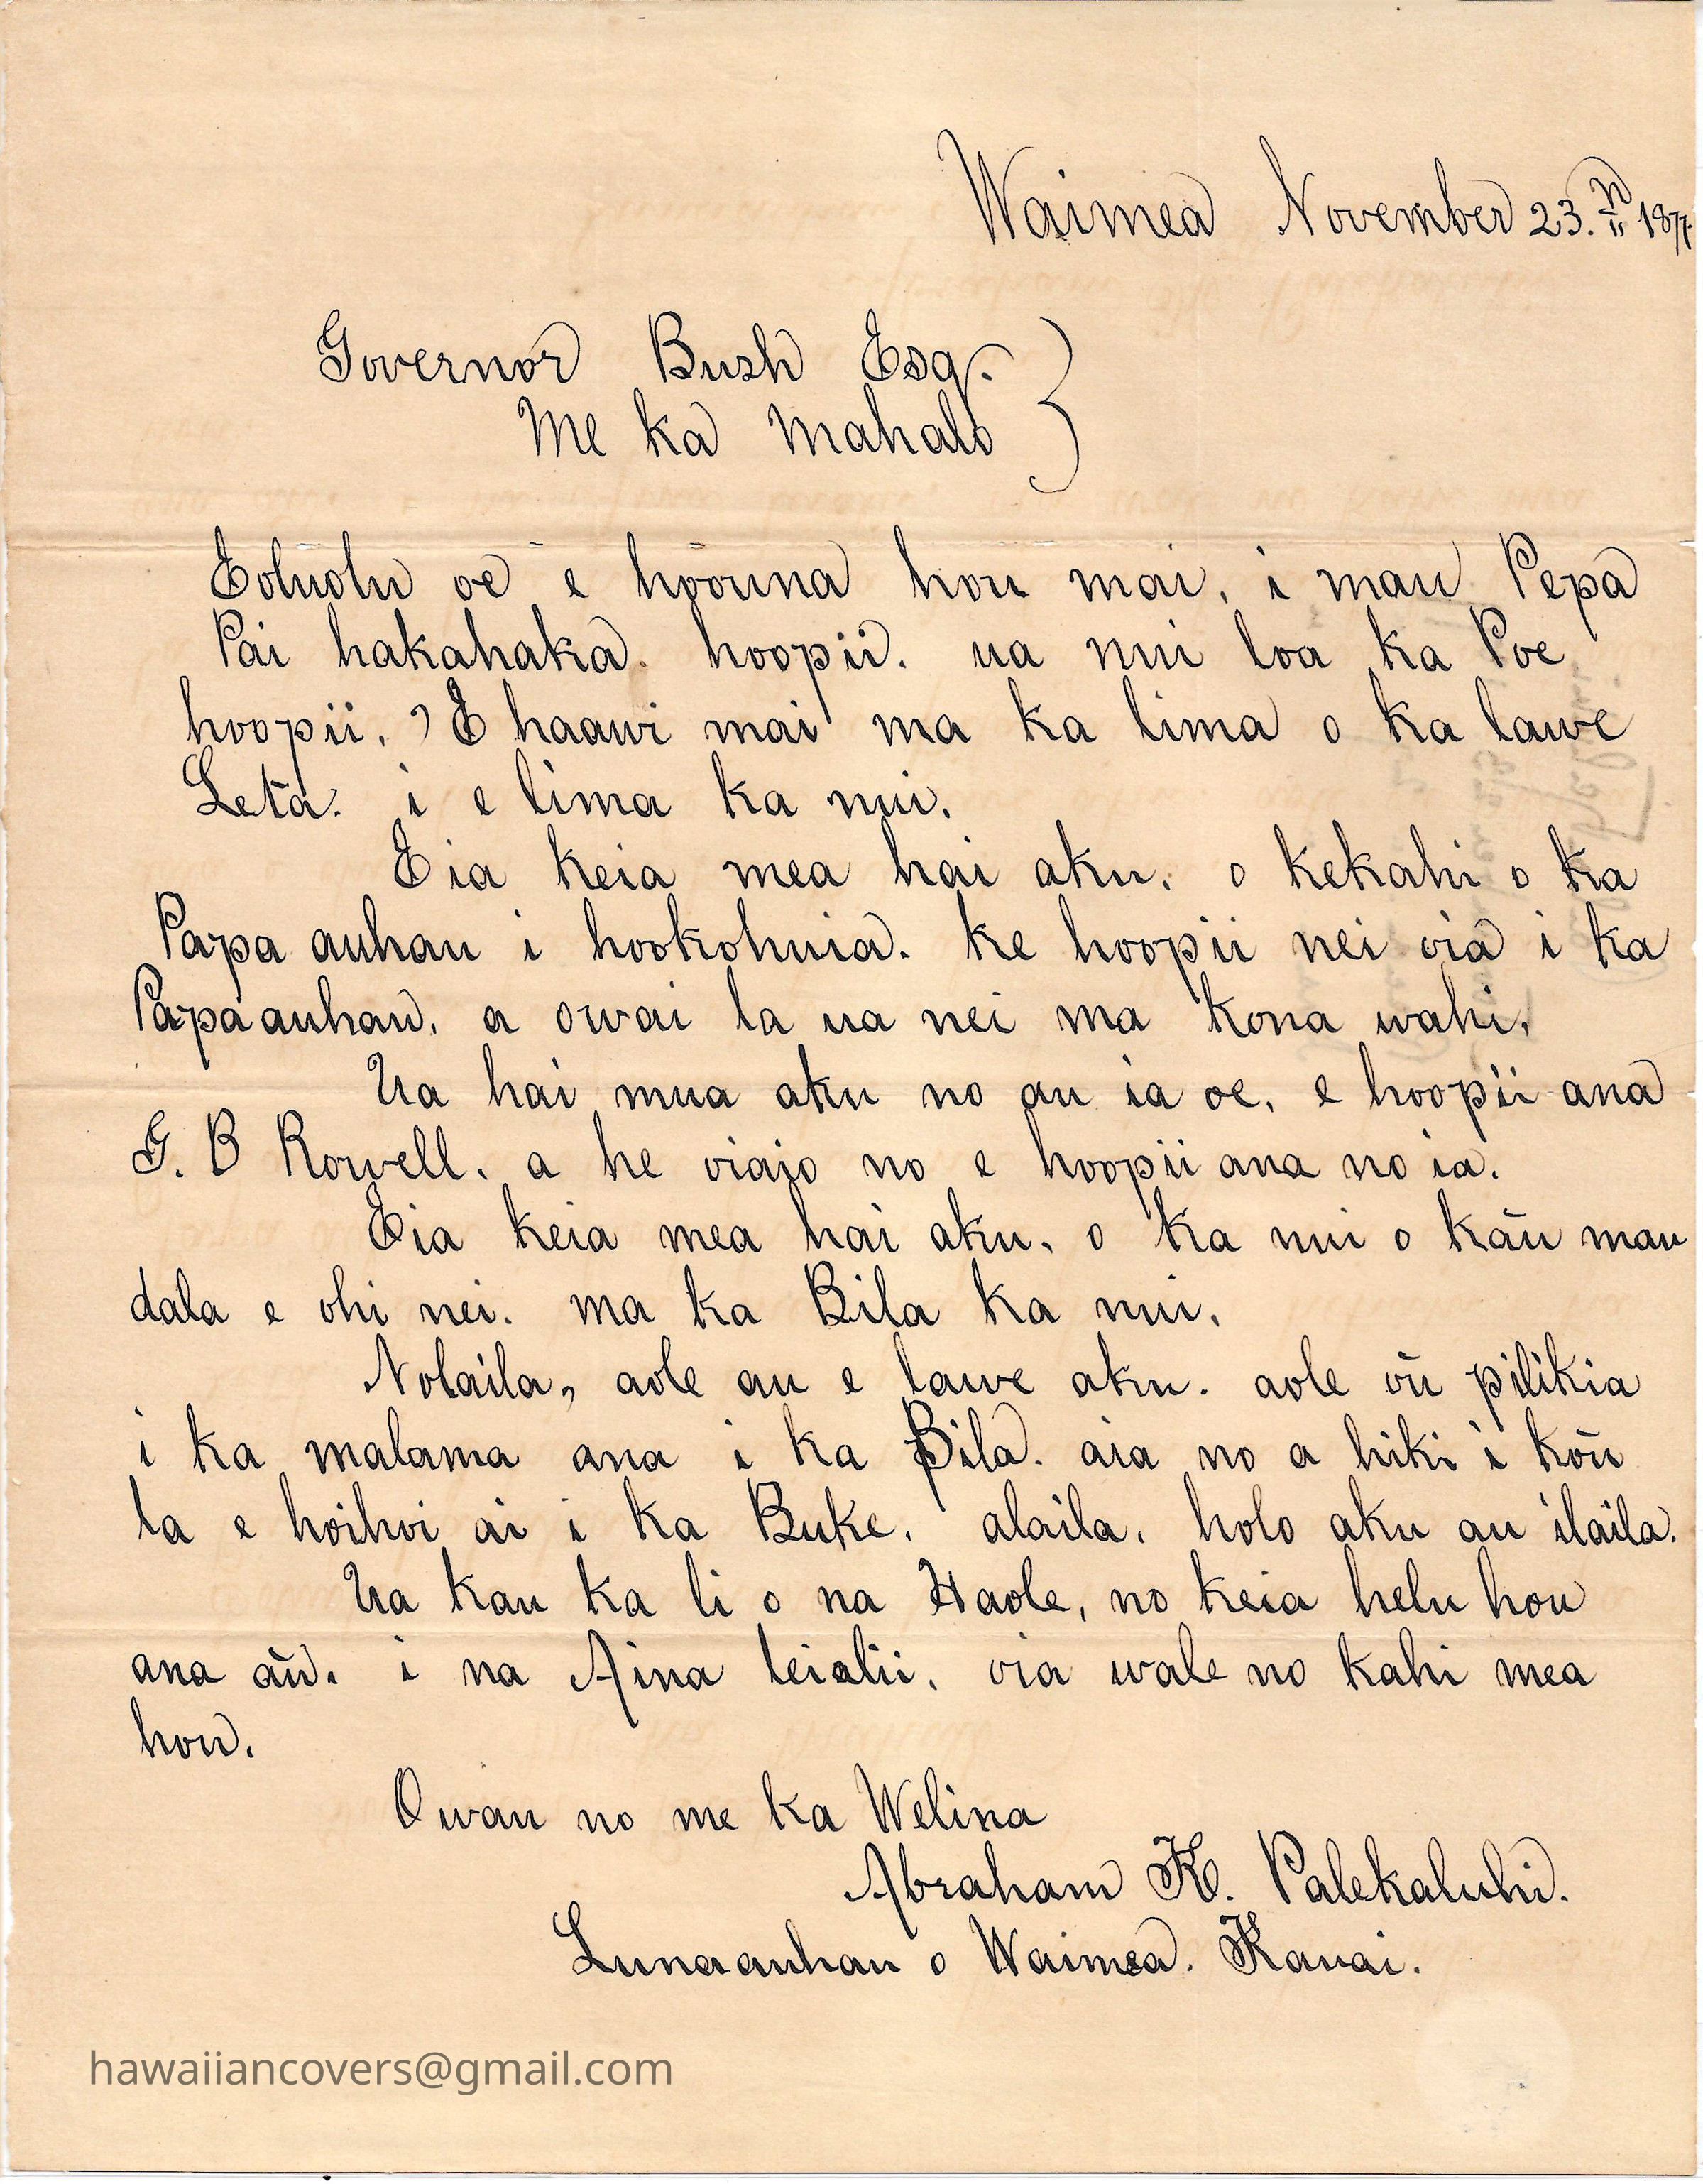 Waimea November 23.rd 1877.
Governor Bush Esq.
Me ka Mahalo
Eoluolu oe e hoouna hou mai, i mau Pepa
Pai hakahaka. hoopii. ua nui loa ka Poe
hoopii, E haawi mai ma ka lima o ka lawe
Leta. i elima ka nui.
Eia keia mea hai aku. o kekahi o ka
Papa auhau i hookohuia. ke hoopii nei oia i ka
Papaauhau, a owai la ua nei ma kona wahi,
Ua hai mua aku no au ia oe, e hoopii ana
G. B Rowell. a he oiaio no e hoopii ana no ia.
Eia keia mea hai aku. o ka nui o kāu mau
dala e ohi nei. ma ka Bila ka nui,
Nolaila, aole au e lawe aku. aole oū pilikia
i ka malama ana i ka Bila. aia no a hiki i kōu
la e hoihoi ai i ka Buke, alaila, holo aku au ilaila.
Ua kau ka li o na Haole, no keia helu hou
ana aū. i na Aina leialii, oia wale no kahi mea
hou.
Owau no me ka Welina
Abraham K. Palekaluhi.
Lunaauhau o Waimea. Kauai.
hawaiiancovers@gmail.com